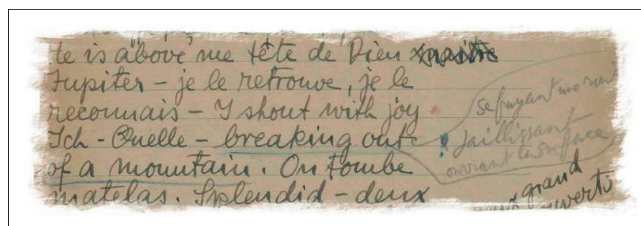 te is above me tête de Dieu
Jupiter - je le retrouve, je le
reconnais - I shout with joy
Ich - Quelle - breaking out
of a mountain. On tombe
matelas. Splendid - deux
se frayant une
jaillissant
ouvrant la surface
grand